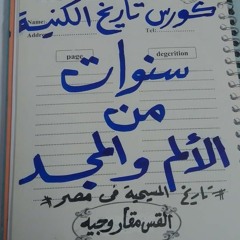 كورس تاريخ الكنيسة
Name:
Address:
Tel:
page
degcrition
سنوات
من
الألم والمجد
# تاريخ المسيحية فى مصر #
القس مقار وجيه